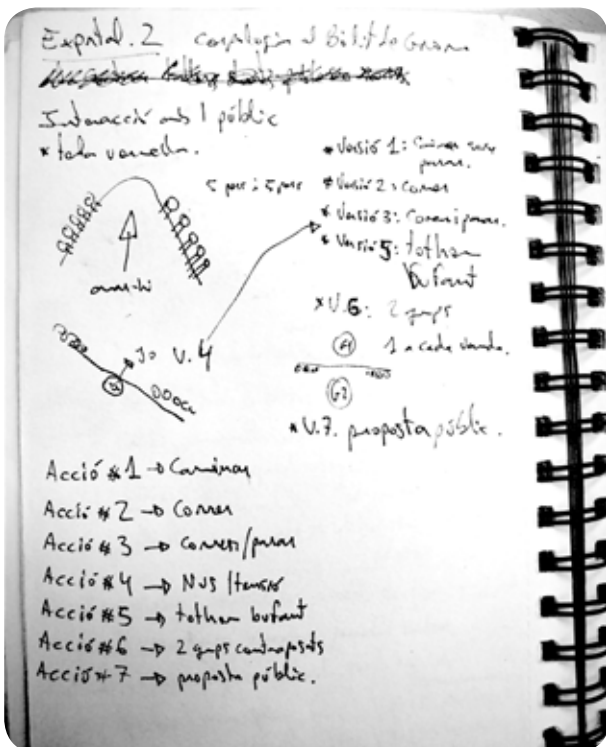 Expntal. 2
Interacció amb l públic
* tela vermella.
5 per a 5 pers
* Versió 1: Caminar sense parar.
* Versió 2: Correr
* Versió 3: Correr i parar.
* Versió 5: tothom bufant
* V.6: 2 grups
1 a cada banda.
G1
G2
* V.7. proposta públic.
Jo V.4
Acció #1 → Caminar
Acció #2 → Correr
Acció #3 → Correr/parar
Acció #4 → Nus / tensió
Acció #5 → tothom bufant
Acció #6 → 2 grups contraposats
Acció #7 → proposta públic.